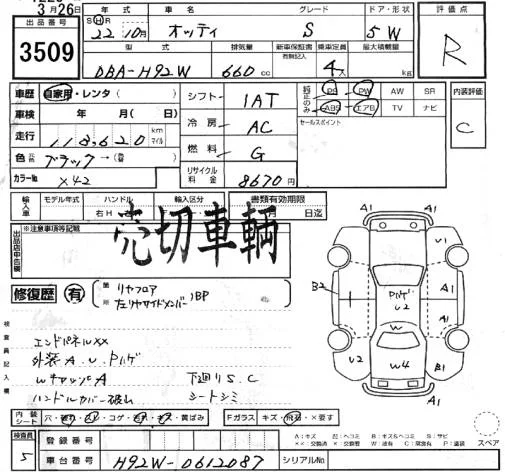 3月26日
出品番号
3509
年式 車名 グレード ドア・形状
SHR
22 10月 オッティ S 5W
型式 排気量 新車保証書 乗車定員 最大積載量
有無記入
DBA-H92W 660cc 4人 kg
評価点
R
車歴 自家用・レンタ( )
車検 年 月( 日)
走行 118,620 km マイル
色 元色 ブラック→(替 )
カラーNo X42
シフト IAT
冷房 AC
燃料 G
リサイクル料金 8670円
純正のみ PS PW AW SR
ABS エアB TV ナビ
セールスポイント
内装評価
C
輸入車 モデル年式 ハンドル 輸入区分 書類有効期限
右H 左 月 日迄
売切車輌
出品店申告欄 ※注意事項等記載
修復歴 有 箇所 リヤフロア
左リヤサイドメンバー BP
検査員記入欄
エンドパネルXX
外装A.U.Pハゲ
WキャッパA 下回りS.C
ハンドルカバー破れ シートシミ
A1 A1
U1
A1
B2 Pハゲ U A1
W
U2 W4 B1
A1 A1
内装シート 穴・破れ・シミ・コゲ・汚れ・キズ・黄ばみ Fガラス キズ・飛石・×要す
検査員 5
登録番号
車台番号 H92W-0612087 シリアルNo
A:キズ U:ヘコミ B:キズ&ヘコミ S:サビ
××:交換済 ×:交換要 W:波有 C:腐食有 P:塗装
スペア